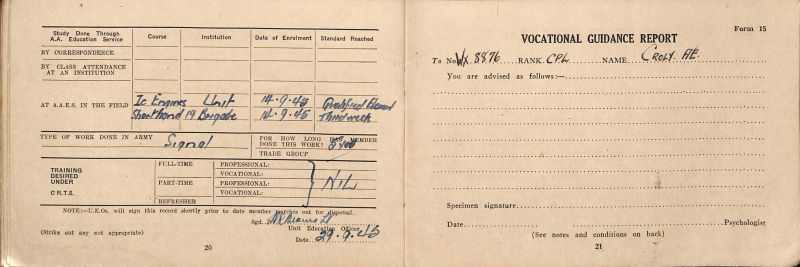 Study Done Through A.A. Education Service | Course | Institution | Date of Enrolment | Standard Reached
BY CORRESPONDENCE
BY CLASS ATTENDANCE AT AN INSTITUTION
AT A.A.E.S. IN THE FIELD
Ic Engines Unit 14.9.45 Qualified
Shorthand 19 Brigade 14.9.45 Third week
TYPE OF WORK DONE IN ARMY
Signal
FOR HOW LONG HAS MEMBER DONE THIS WORK?
TRADE GROUP
TRAINING DESIRED UNDER C.R.T.S.
FULL-TIME
PROFESSIONAL:
VOCATIONAL:
PART-TIME
PROFESSIONAL:
VOCATIONAL:
REFRESHER
NIL
NOTE:—U.E.Os. will sign this record shortly prior to date member marches out for dispersal.
Sgd.
Unit Education Officer
(Strike out any not appropriate)
Date 29.9.45
20
Form 15
VOCATIONAL GUIDANCE REPORT
To No. WX 8876 RANK CPL NAME CROLY AE.
You are advised as follows:—
Specimen signature
Date Psychologist
(See notes and conditions on back)
21